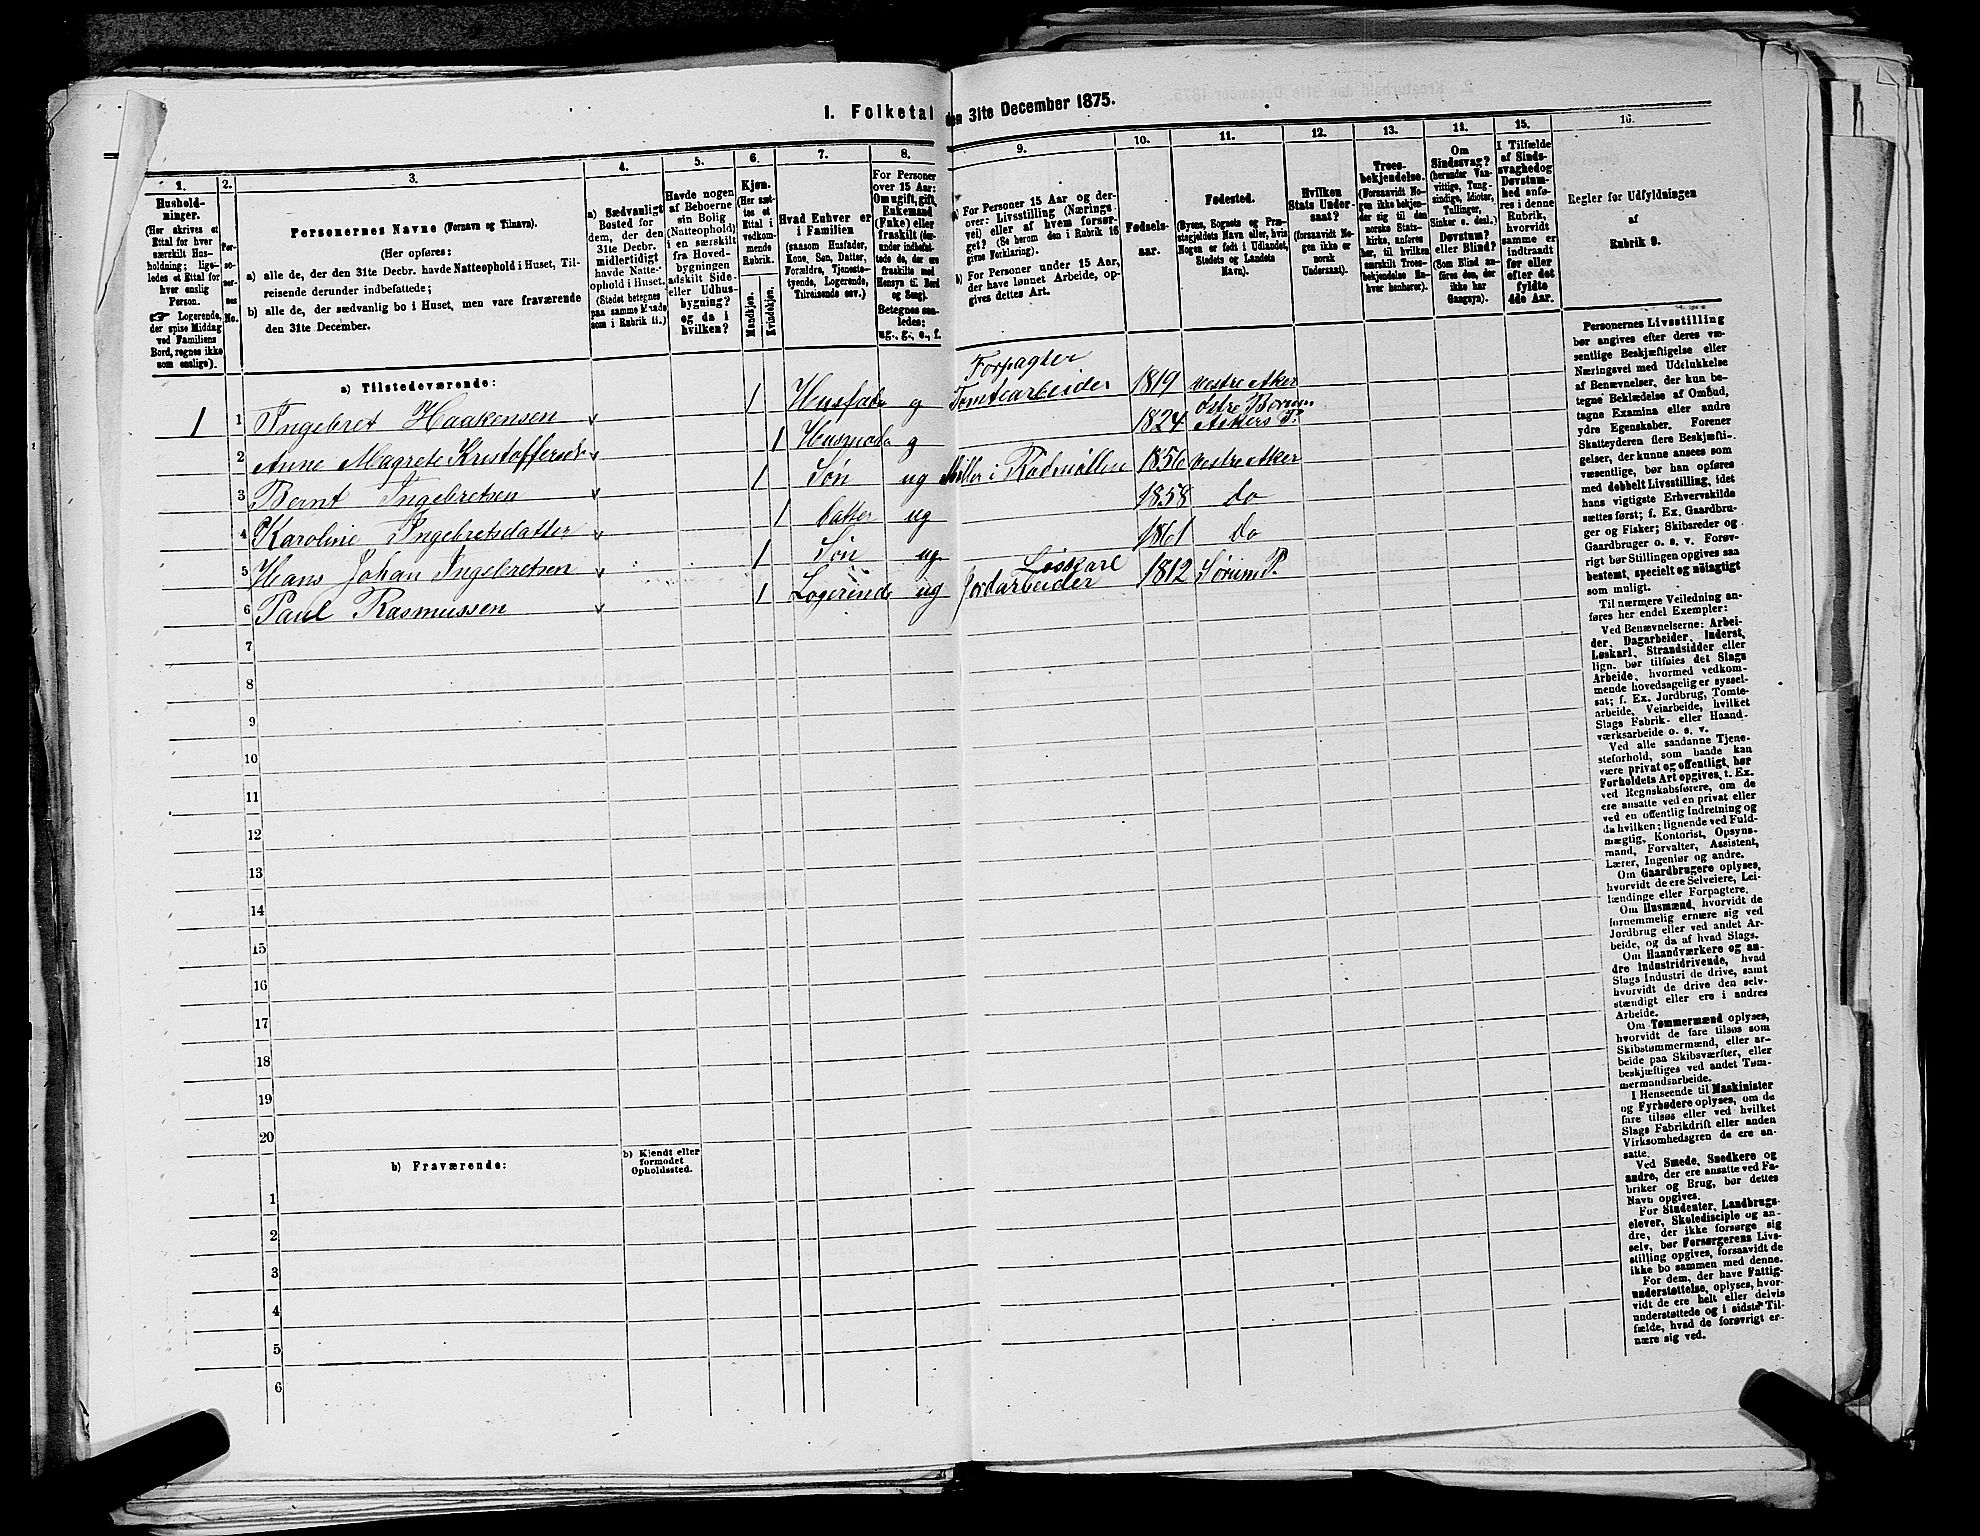 1. Folketal den 31te December 1875.
1. 2. 3. 4. 5. 6. 7. 8. 9. 10. 11. 12. 13. 14. 15. 16.
Husholdninger.
(Her skrives et
Ettal for hver
særskilt Husholdning; ligeledes et Ettal for
hver enslig
Person.
☞ Logerende,
der spise Middag
ved Familiens
Bord, regnes ikke
som enslige).
Personernes No.
Personernes Navne (Fornavn og Tilnavn).
(Her opføres:
a) alle de, der den 31te Decbr. havde Natteophold i Huset, Tilreisende derunder indbefattede;
b) alle de, der sædvanlig bo i Huset, men vare fraværende
den 31te December.
a) Sædvanligt
Bosted for
dem, der den
31te Decbr.
midlertidigt
havde Natteophold i Huset.
(Stedet betegnes
paa samme Maade
som i Rubrik 11.)
Havde nogen
af Beboerne
sin Bolig
(Natteophold)
i en særskilt
fra Hovedbygningen
adskilt Side-
eller Udhusbygning?
og da i
hvilken?
Kjøn.
(Her sættes et
Ettal i
vedkommende
Rubrik.
Mandkjøn.
Kvindekjøn.
Hvad Enhver er
i Familien
(saasom Husfader,
Kone, Søn, Datter,
Forældre, Tjenestetyende, Logerende,
Tilreisende osv.)
For Personer
over 15 Aar:
Om ugift, gift,
Enkemand
(Enke) eller
fraskilt (derunder indbefattede de, der ere
fraskilte med
Hensyn til Bord
og Seng).
Betegnes saaledes:
ug., g., e., f.
a) For Personer 15 Aar og derover: Livsstilling (Næringsvei) eller af hvem forsørget? (Se herom den i Rubrik 16
gives Forklaring).
b) For Personer under 15 Aar,
der have lønnet Arbeide, opgives dettes Art.
Fødselsaar.
Fødested.
(Byens, Sognets og Præstegjeldets Navn eller, hvis
Nogen er født i Udlandet,
Stedets og Landets
Navn).
Hvilken
Stats Undersaat?
(forsaavidt Nogen ikke er
norsk
Undersaat).
Troesbekjendelse.
(Forsaavidt Nogen ikke bekjender sig til den
norske Statskirke, anføres
her, til hvilken
særskilt Troesbekjendelse Enhver henhører).
Om
Sindssvag?
(herunder Vanvittige, Tungsindige, Idioter,
Tullinger,
Sinker o. desl.)
Døvstum?
eller Blind?
(Som Blind anføres den, der
ikke har
Gangsyn).
I Tilfælde
af Sindssvaghed og
Døvstumhed anføres i denne
Rubrik,
hvorvidt
samme er
indtraadt
før eller
efter det
fyldte
4de Aar.
Regler for Udfyldningen
af
Rubrik 9.
a) Tilstedeværende:
1 1 Ingebret Haakensen v 1 Husfader g Forpagter Tomtearbeider 1819 Vestre Aker
2 Anne Magrete Kristoffersdt v 1 Husmoder g 1824 Østre Bærum Askers P.
3 Bernt Ingebretsen v 1 Søn ug Møller i Rodmøllen 1856 Vestre Aker
4 Karoline Ingebretsdatter v 1 Datter ug 1858 do
5 Hans Johan Ingebretsen v 1 Søn ug 1861 do
6 Paul Rasmussen v 1 Logerende ug Løskarl Jordarbeider 1812 Sørum P.
7
8
9
10
11
12
13
14
15
16
17
18
19
20
b) Fraværende:
b) Kjendt eller
formodet
Opholdssted.
1
2
3
4
5
6
Personernes Livsstilling
bør angives efter deres væsentlige Beskjæftigelse eller
Næringsvei med Udelukkelse
af Benævnelser, der kun betegne Beklædelse af Ombud,
tagne Examina eller andre
ydre Egenskaber. Forener
Skatteyderen flere Beskjæftigelser, der kunne ansees som
væsentlige, bør han opføres
med dobbelt Livsstilling, idet
hans vigtigste Erhvervskilde
sættes først; f. Ex. Gaardbruger og Fisker; Skibsreder og
Gaardbruger o. s. v. Forøvrigt bør Stillingen opgives saa
bestemt, specielt og nöiagtigt
som muligt.
Til nærmere Veiledning anføres her endel Exempler:
Ved Benævnelserne: Arbeider, Dagarbeider, Inderst,
Løskarl, Strandsidder eller
lign. bør tilføies det Slags
Arbeide, hvormed vedkommende hovedsagelig er sysselsat; f. Ex. Jordbrug, Tomtearbeide, Veiarbeide, hvilket
Slags Fabrik- eller Haandværksarbeide o. s. v.
Ved alle saadanne Tjenesteforhold, som baade kan
være privat og offentligt, bør
Forholdets Art opgives, t. Ex.
ved Regnskabsførere, om de
ere ansatte ved en privat eller
ved en offentlig Indretning og
da hvilken; lignende ved Fuldmægtig, Kontorist, Opsynsmand, Forvalter, Assistent,
Lærer, Ingeniør og andre.
Om Gaardbrugere oplyses,
hvorvidt de ere Selveiere, Leilændinge eller Forpagtere.
Om Husmænd, hvorvidt de
fornemmelig ernære sig ved
Jordbrug eller ved andet Arbeide, og da af hvad Slags.
Om Haandværkere og andre Industridrivende, hvad
Slags Industri de drive, samt
hvorvidt de drive den selvstændigt eller ere i andres
Arbeide.
Om Tømmermænd oplyses,
hvorvidt de fare tilsøs som
Skibstømmermænd, eller arbeide paa Skibsværfter, eller
beskjæftiges ved andet Tømmermandsarbeide.
I Henseende til Maskinister
og Fyrbødere oplyses, om de
fare tilsøs eller ved hvilket
Slags Fabrikdrift eller anden
Virksomhedsgren de ere ansatte.
Ved Smede, Snedkere og
andre, der ere ansatte ved Fabriker og Brug, bør dettes
Navn opgives.
For Studenter, Landbrugselever, Skoledisciple og andre, der ikke forsørge sig
selv, bør Forsørgerens Livsstilling opgives, forsaavidt de
ikke bo sammen med denne.
For dem, der have Fattigunderstøttelse, oplyses, hvorvidt de ere helt eller delvis
understøttede og i sidste Tilfælde, hvad de forøvrigt ernære sig ved.